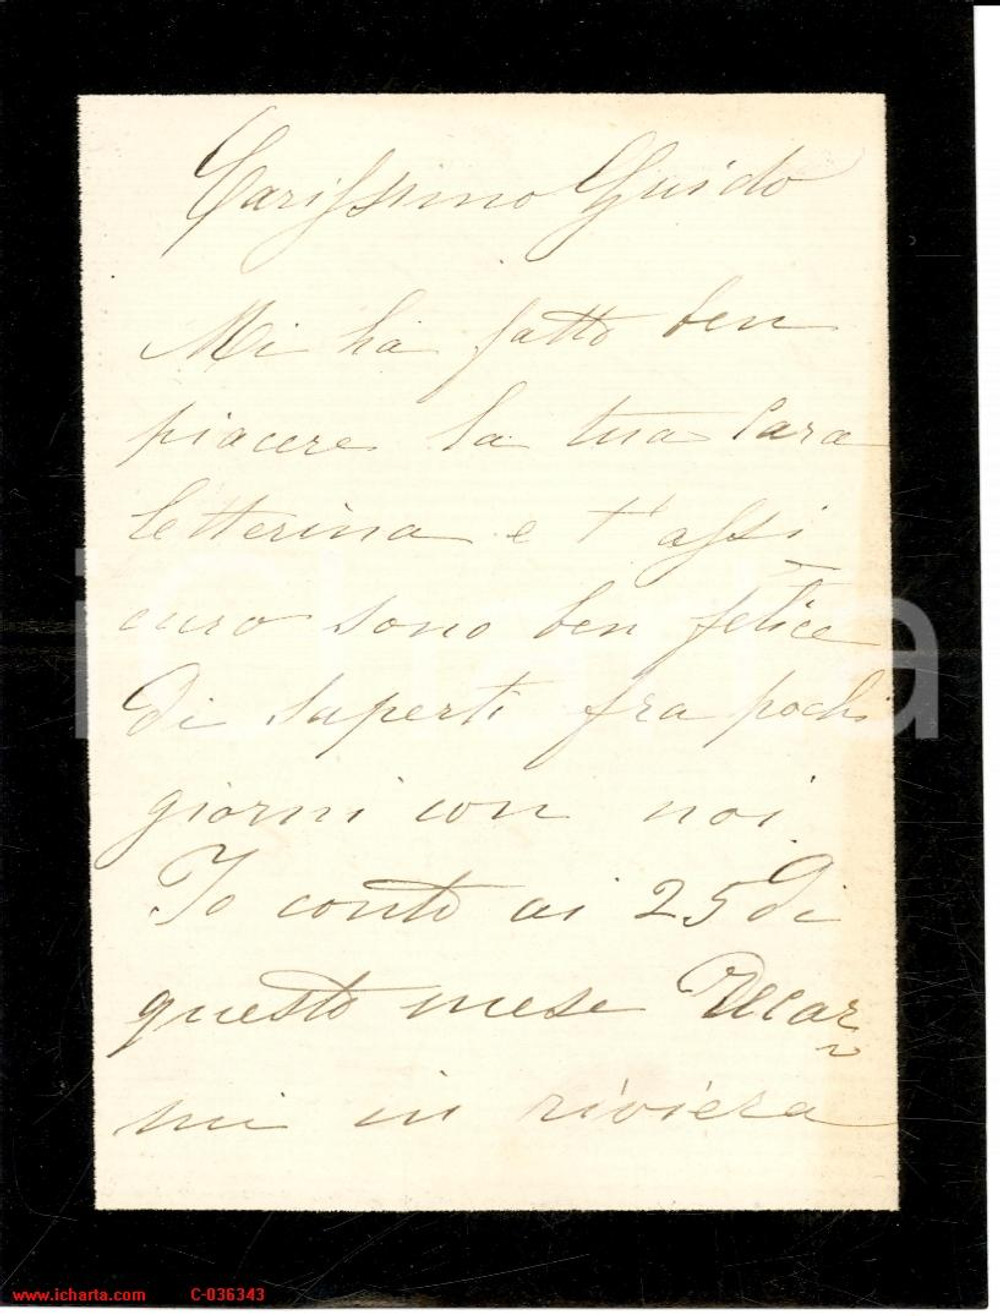 Carissimo Guido
Mi ha fatto ben
piacere la tua Cara
letterina e t'assi
curo sono ben felice
di saperti fra pochi
giorni con noi
Io conto ai 25 di
questo mese Recar
mi in riviera
iCharta
www.icharta.com C-036343